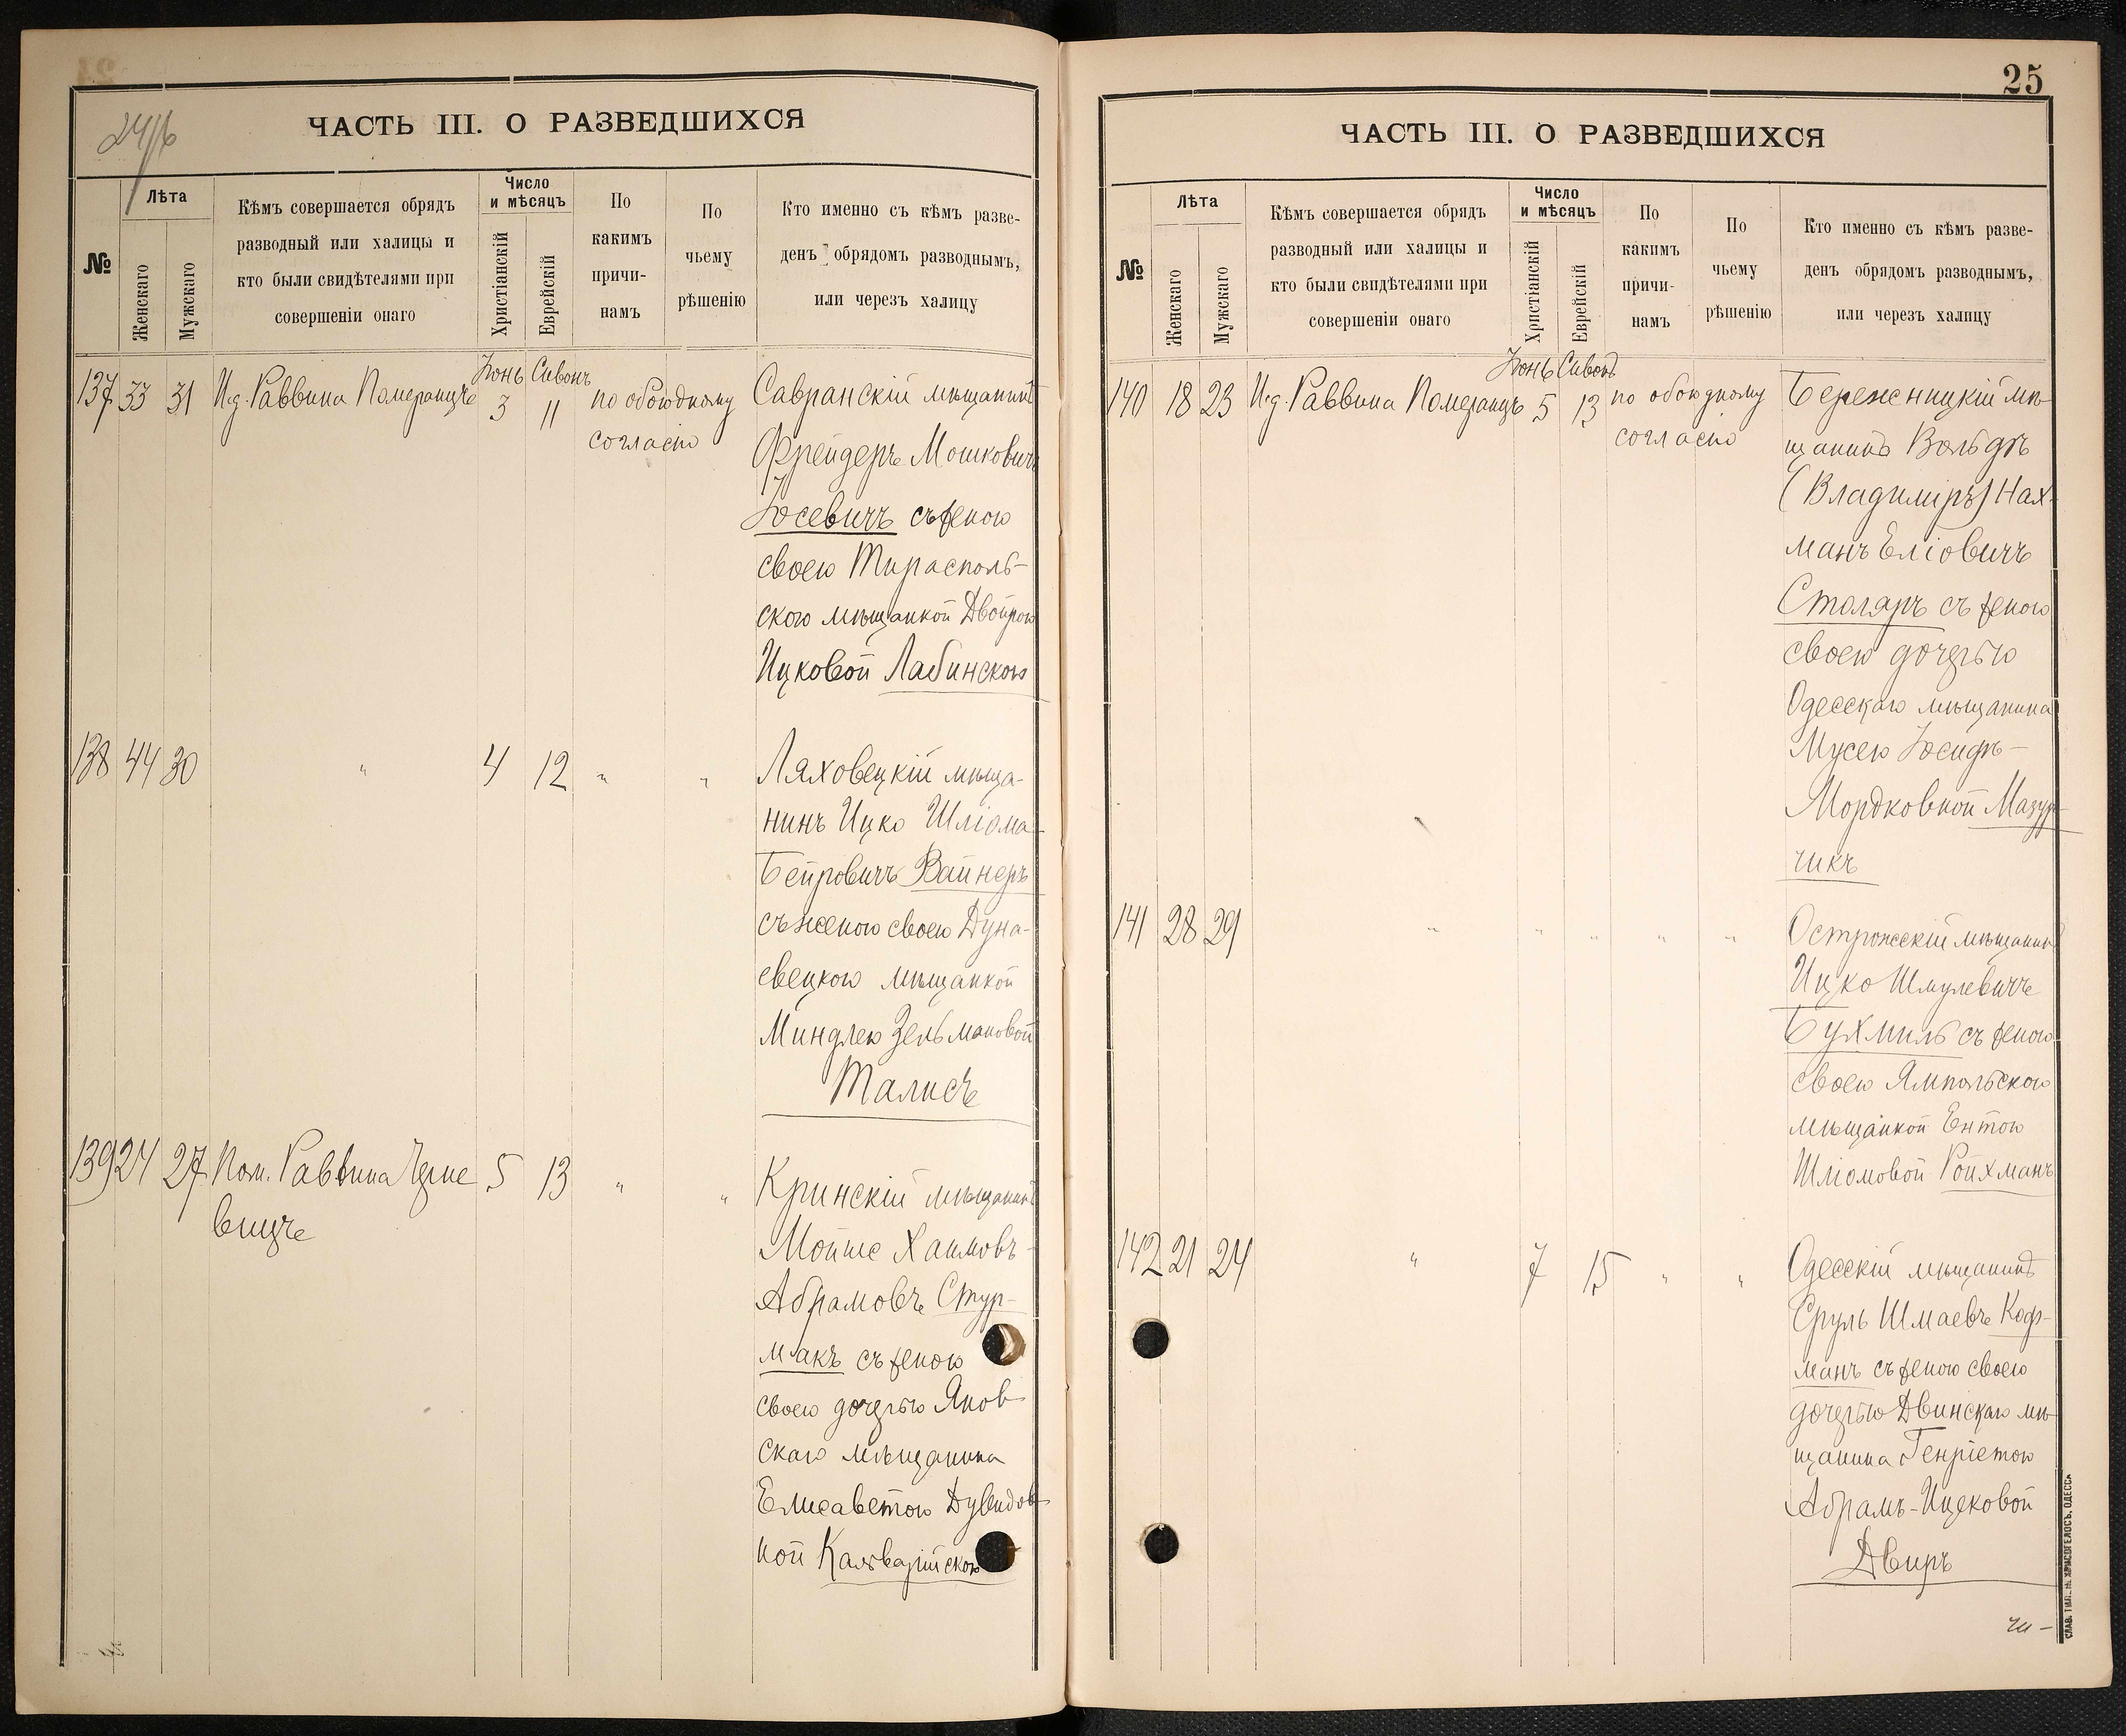 24/б
ЧАСТЬ III. О РАЗВЕДШИХСЯ
№
Лѣта
Женскаго
Мужскаго
Кѣмъ совершается обрядъ
разводный или халицы и
кто были свидѣтелями при
совершеніи онаго
Число
и мѣсяцъ
Христіанскій
Еврейскій
По
какимъ
причи-
намъ
По
чьему
рѣшенію
Кто именно съ кѣмъ разве-
денъ обрядомъ разводнымъ,
или черезъ халицу
Іюнь Сивонъ
137 33 31 И.д. Раввина Померанцъ 3 11 по обоюдному
согласію
Савранскій мѣщанинъ
Фрейдеръ Мошковичъ
Іосевичъ съ женою
своею Тирасполь-
скою мѣщанкой Двойрою
Ицковой Лабинскою
138 44 30 " 4 12 " "
Ляховецкій мѣща-
нинъ Ицко Шліома-
Бейровичъ Вайнеръ
съ женою своею Дуна-
евецкою мѣщанкой
Миндлею Зельмановой
Талисъ
139 24 27 Пом. Раввина Черне
вицъ
5 13 " "
Кринскій мѣщанинъ
Мойше Хаимовъ-
Абрамовъ Стур-
макъ съ женою
своею дочерью Янов
скаго мѣщанина
Елисаветою Дувидов
ной Калварійскою
25
ЧАСТЬ III. О РАЗВЕДШИХСЯ
№
Лѣта
Женскаго
Мужскаго
Кѣмъ совершается обрядъ
разводный или халицы и
кто были свидѣтелями при
совершеніи онаго
Число
и мѣсяцъ
Христіанскій
Еврейскій
По
какимъ
причи-
намъ
По
чьему
рѣшенію
Кто именно съ кѣмъ разве-
денъ обрядомъ разводнымъ,
или черезъ халицу
Іюнь Сивонъ
140 18 23 И.д. Раввина Померанцъ 5 13 по обоюдному
согласію
Бережницкій мѣ-
щанинъ Вольфъ
(Владиміръ) Нах-
манъ Еліовичъ
Столяръ съ женою
своею дочерью
Одесскаго мѣщанина
Мусею Іосифъ-
Мордковной Мазур-
чикъ
141 28 29 " " " " "
Острожскій мѣщанинъ
Ицко Шмулевичъ
Бухмиль съ женою
своею Ямпольскою
мѣщанкой Ентою
Шліомовой Ройхманъ
142 21 24 " 7 15 " "
Одесскій мѣщанинъ
Сруль Шмаевъ Коф-
манъ съ женою своею
дочерью Двинскаго мѣ-
щанина Генріетою
Абрамъ-Ицековой
Двиръ
СЛАВ. ТИП. Н. ХРИСОГЕЛОСЪ, ОДЕССА